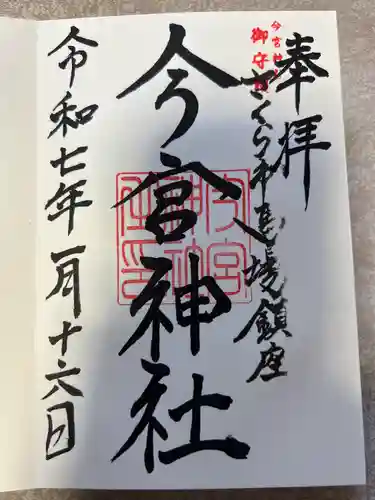 奉拝
今宮神社
御守
さくら市馬場鎮座
今宮神社
今宮神社之印
令和七年一月十六日